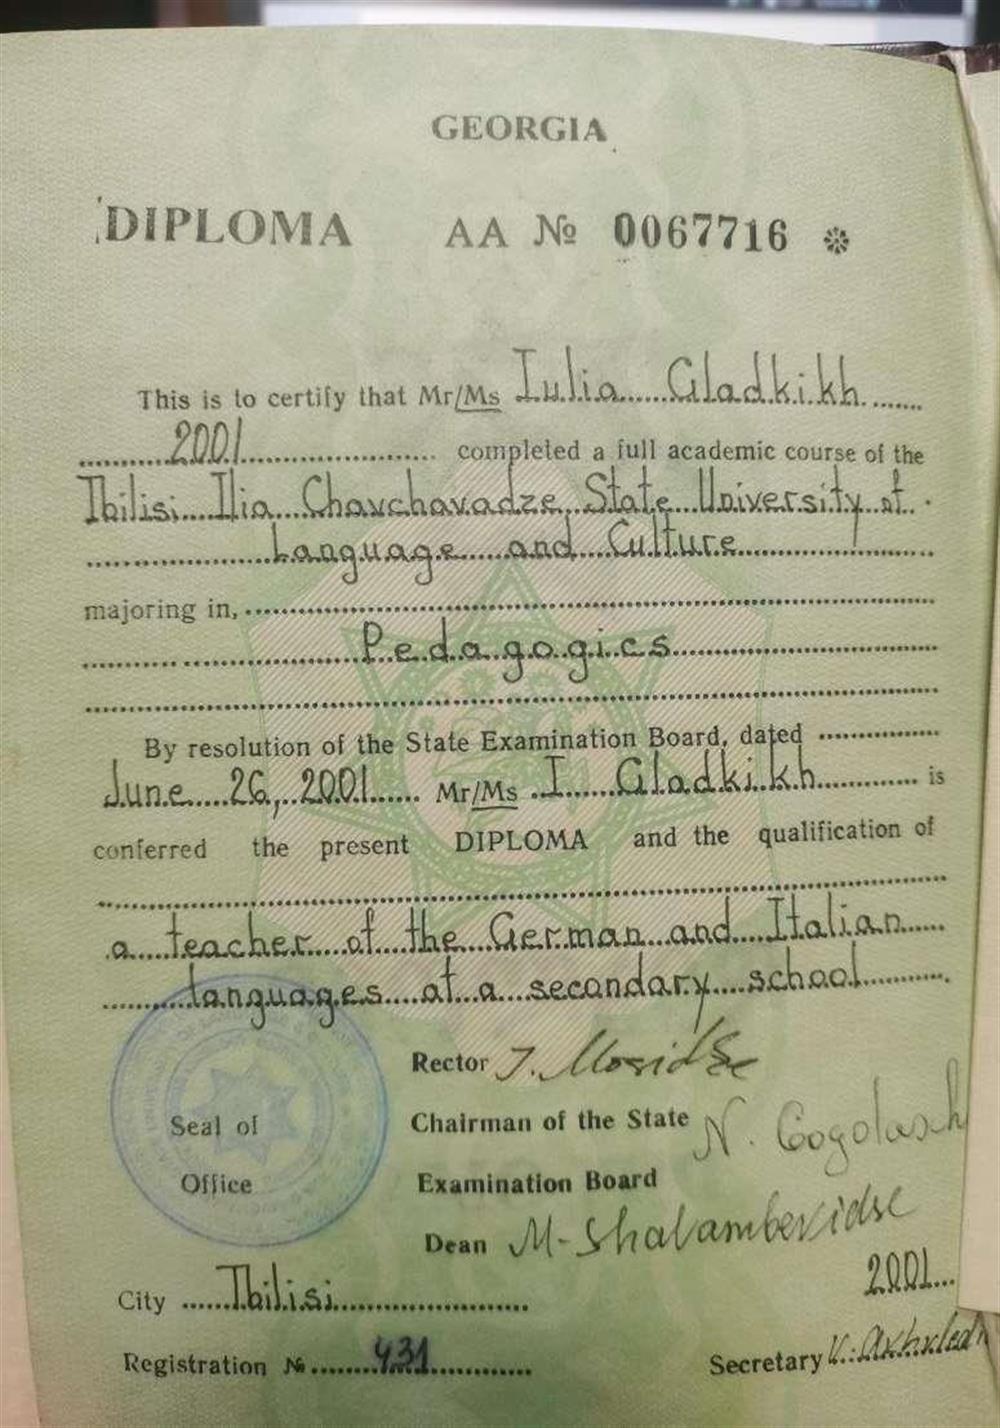 GEORGIA
DIPLOMA AA № 0067716 *
This is to certify that Mr/Ms Iulia Gladkikh
2001 completed a full academic course of the
Tbilisi Ilia Chavchavadze State University of
Language and Culture
majoring in,
Pedagogics
By resolution of the State Examination Board, dated
June 26, 2001 Mr/Ms I Gladkikh is
conferred the present DIPLOMA and the qualification of
a teacher of the German and Italian
languages at a secondary school
Rector
Seal of
Office
Chairman of the State N.
Examination Board
Dean M. Shalamberidse
2001
City Tbilisi
Registration № 431
Secretary